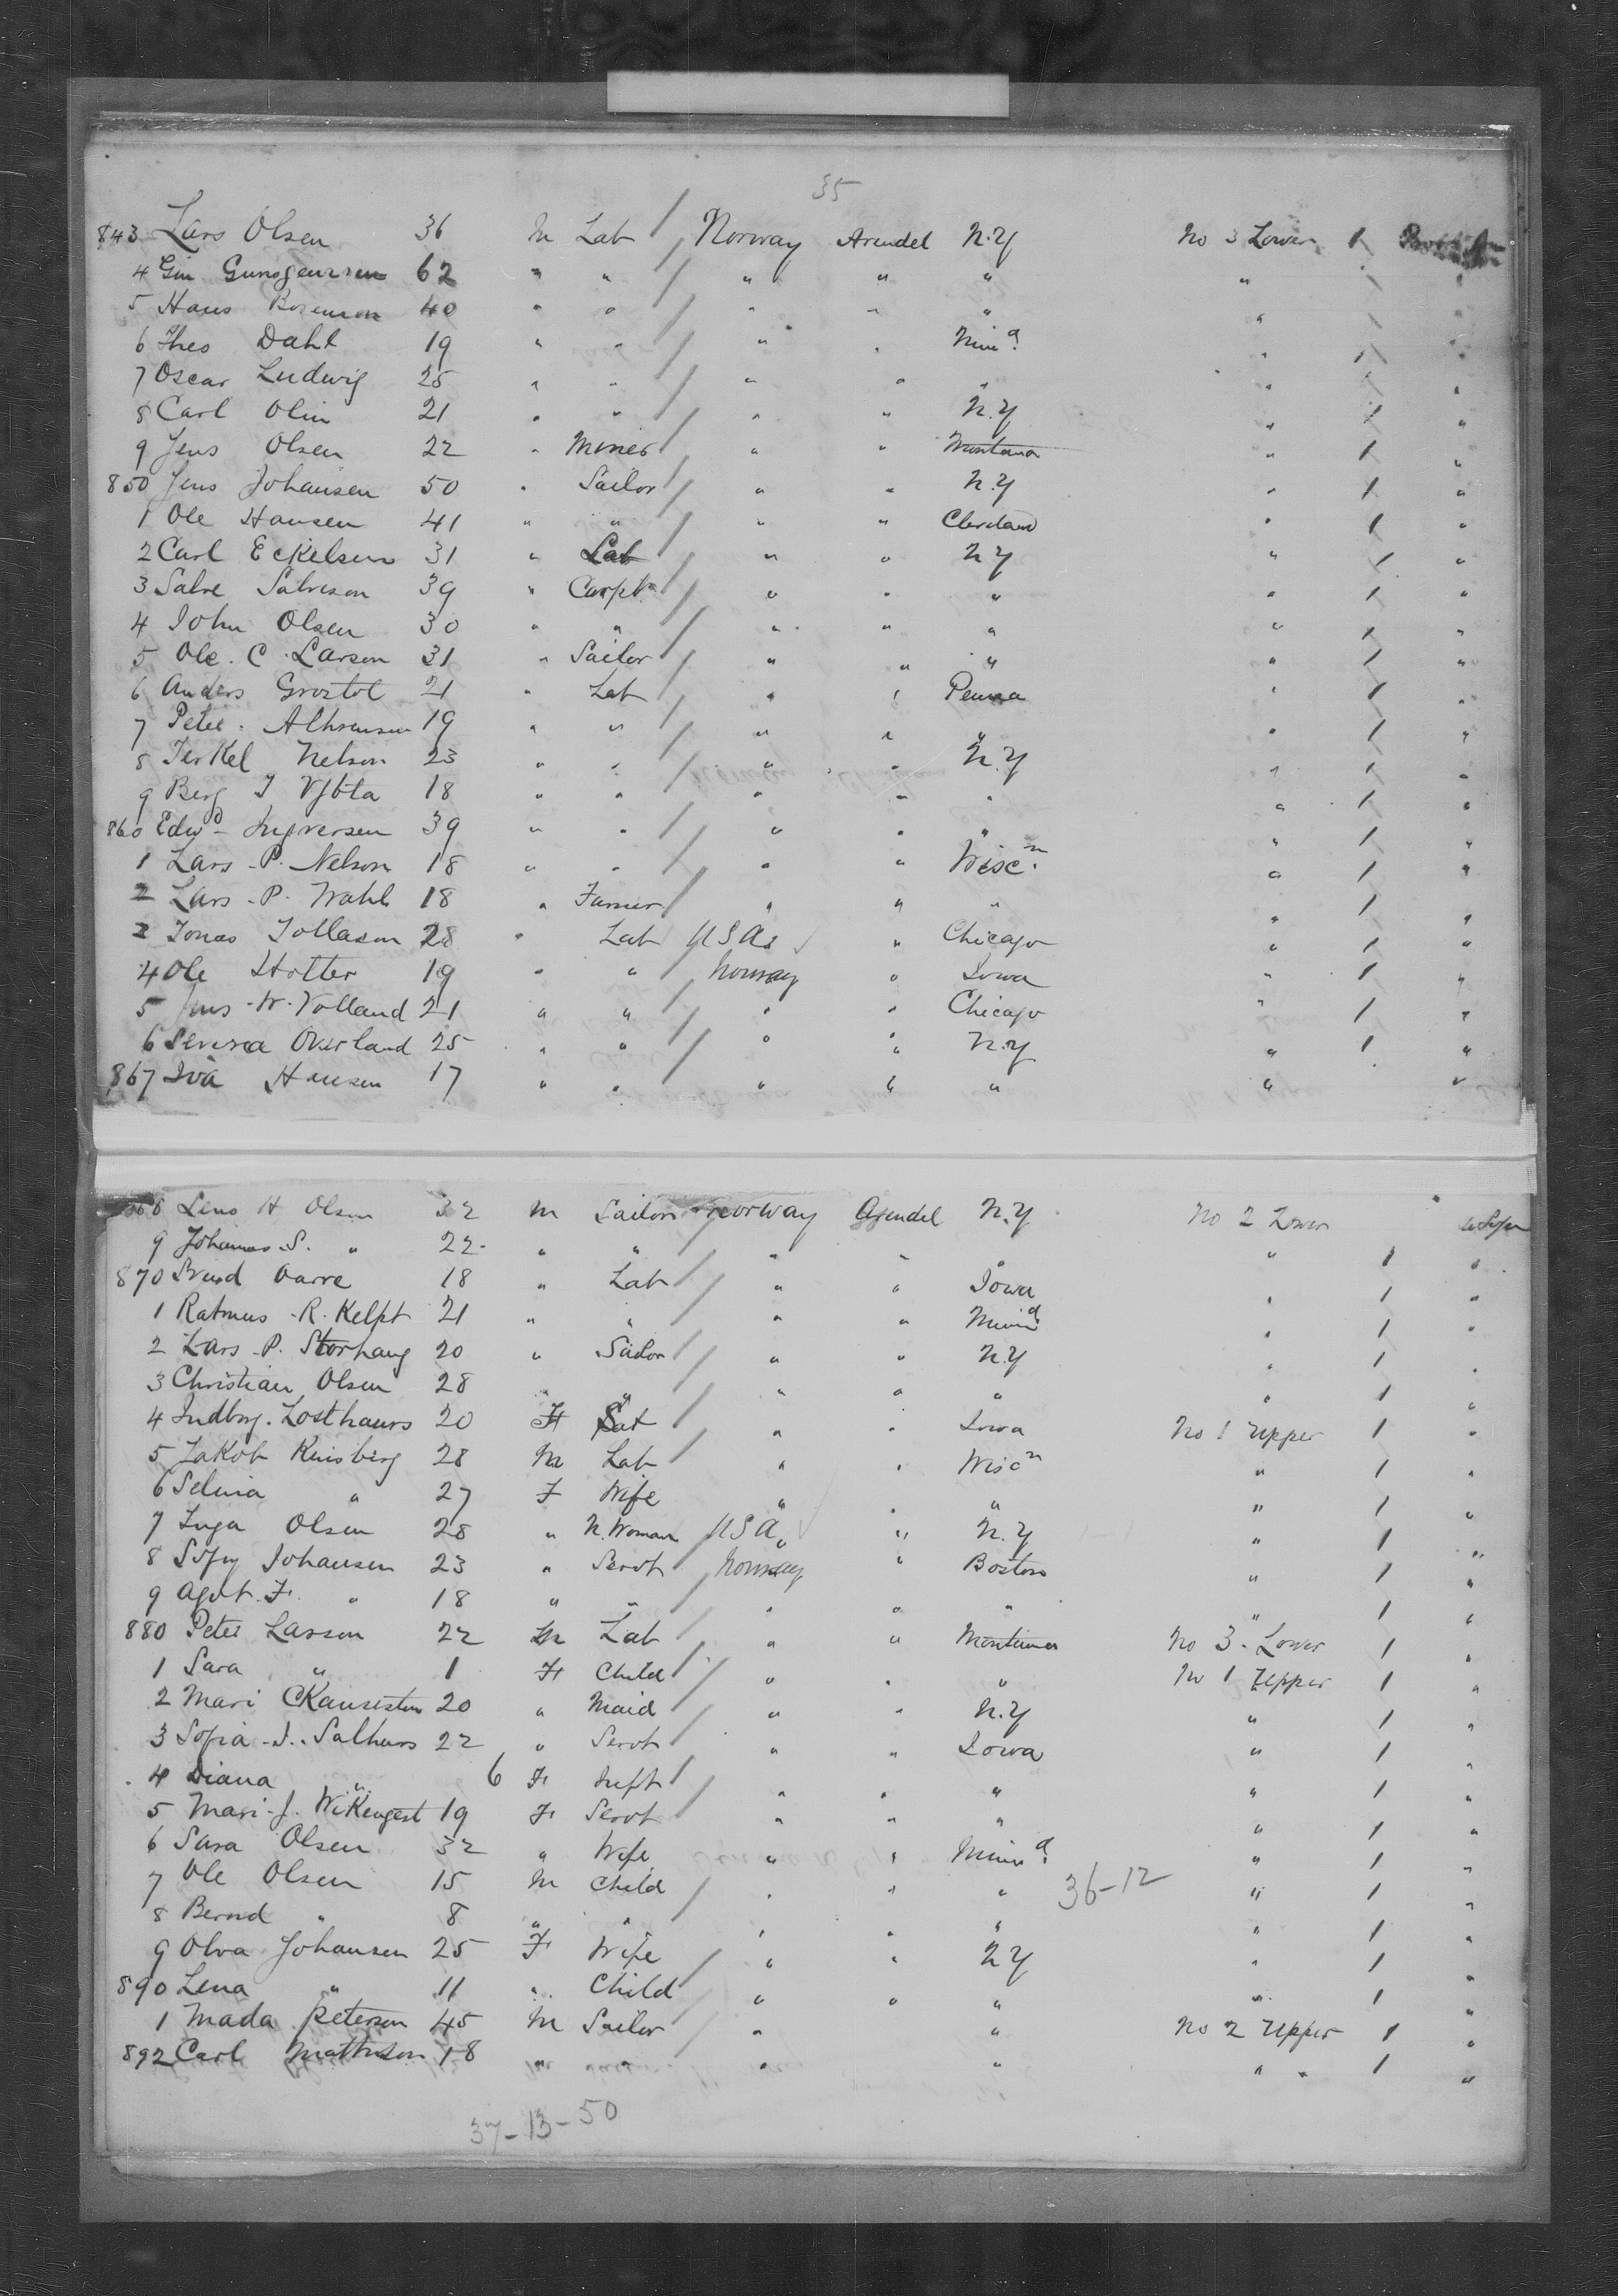 35
843 Lars Olsen 36 M Lab / Norway Arendel N.Y No 3 Lower 1
4 Gunsgeurren 62 " " / " " " " "
5 Hans 40 " " / " " " " "
6 Theo Dahl 19 " " / " " Minn a. " 1 "
7 Oscar Ludwig 25 " " / " " " " "
8 Carl Olin 21 " " / " " N.Y " 1 "
9 Jens Olsen 22 " Miner / " " Montana " 1 "
850 Jens Johansen 50 " Sailor / " " N.Y " 1 "
1 Ole Hansen 41 " " / " " Cleveland " 1 "
2 Carl Eckelsen 31 " Lab / " " N Y " 1 "
3 Salve Salveson 39 " Carptr / " " " " 1 "
4 John Olsen 30 " " / " " " " 1 "
5 Ole. C. Larson 31 " Sailor / " " " " 1 "
6 Anders Grostol 21 " Lab / " " Penna " 1 "
7 Peter. 19 " " / " " " " 1 "
8 Terkel Nelson 23 " " / " " N.Y " 1 "
9 Berg 18 " " / " " " " 1 "
860 Edwd Ingversen 39 " " / " " " " 1 "
1 Lars. P. Nelson 18 " " / " " Wisc n. " 1 "
2 Lars. P. Wahl 18 " Farmer / " " " " 1 "
3 Jonas Tollason 28 " Lab USA " Chicago " 1 "
4 Ole Hotter 19 " " / Norway " Iowa " 1 "
5 Jens. W. Volland 21 " " / " " Chicago " 1 "
6 Overland 25 " " / " " N.Y " 1 "
867 Iva Hansen 17 " " " " " " "
868 Lens H Olsen 32 M Sailor Norway Arendel N.Y No 2 Lower
9 Johannes. S. " 22 " " / " " " " 1 "
870 Svend 18 " Lab / " " Iowa " 1 "
1 Ratmus. R. Kelpt 21 " " / " " Minn a " 1 "
2 Lars. P. Storhaug 20 " Sailor / " " N.Y " 1 "
3 Christian Olsen 28 " " / " " " " 1 "
4 Indborg. Losthaurs 20 F / " " Iowa No 1 Upper 1 "
5 Jakob Kinsberg 28 M Lab / " " Wisc n " 1 "
6 Selma " 27 F Wife " " " " 1 "
7 Inga Olsen 28 " N. Woman USA " N.Y " 1 "
8 Sofy Johansen 23 " Servt / Norway " Boston " 1 "
9 Agot. F. " 18 " " / " " " " 1 "
880 Peter Larson 22 M Lab / " " Montana No 3. Lower 1 "
1 Sara " 1 F Child / " " " No 1 Upper 1 "
2 Mari 20 " Maid / " " N.Y " 1 "
3 Sofia. J. Salhurs 22 " Servt / " " Iowa " 1 "
4 Diana " 6 F Inft / " " " " 1 "
5 Mari. J. Wikengest 19 F Servt / " " " " 1 "
6 Sara Olsen 32 " Wife " " Minn a. " 1 "
7 Ole Olsen 15 M Child / " " " 36-12 " 1 "
8 Bernd " 8 " " / " " " " 1 "
9 Olva Johansen 25 F Wife / " " N Y " 1 "
890 Lena " 11 " Child / " " " " 1 "
1 Mada Peterson 45 M Sailor / " " No 2 Upper 1 "
892 Carl Mattheson 18 " " " " " " 1 "
37-13-50